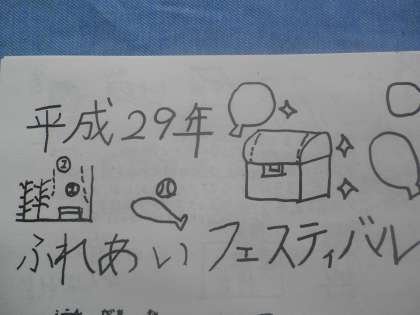 平成29年
ふれあいフェスティバル